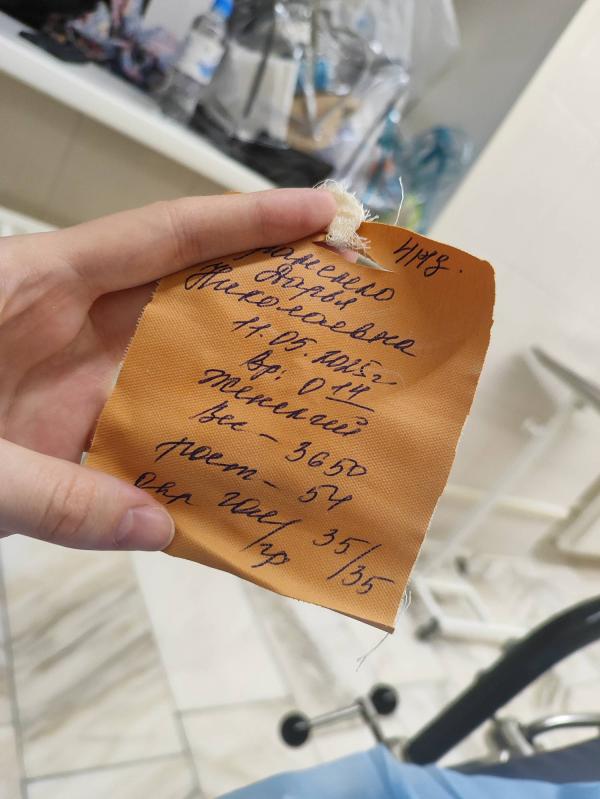 Дарья
Николаевна
11.05.2025г
Вр: 0 14
Женский
Вес - 3650
рост - 54
Окр гол/гр 35/35